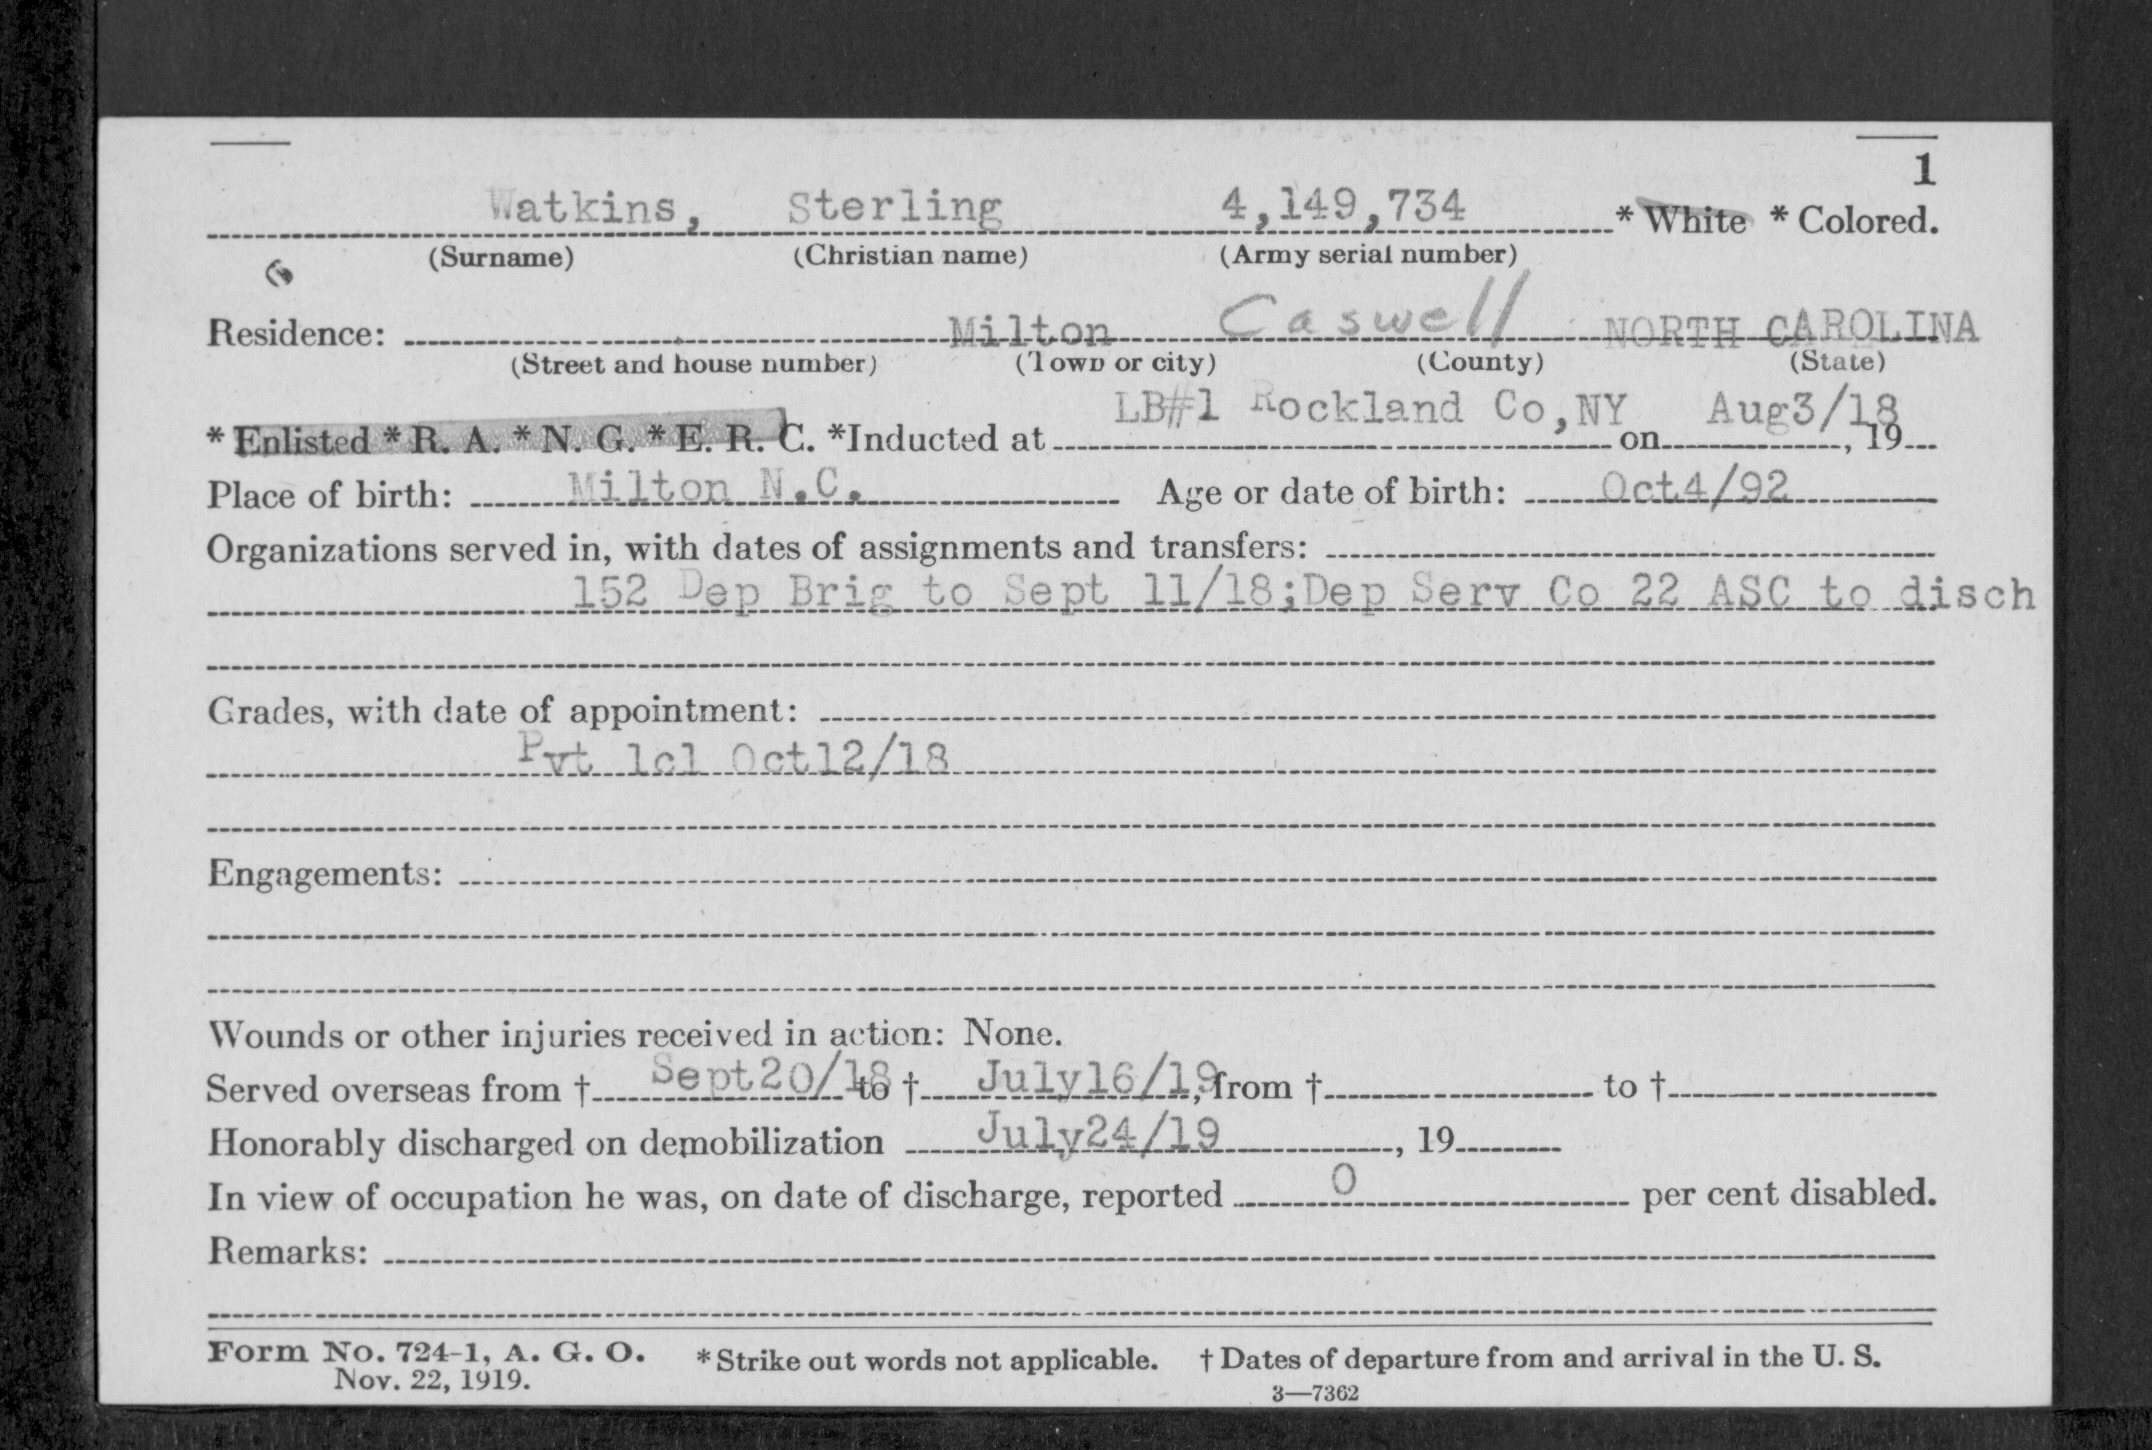 1
Watkins, Sterling 4,149,734 * White * Colored.
(Surname) (Christian name) (Army serial number)
Residence: Milton Caswell NORTH CAROLINA
(Street and house number) (Town or city) (County) (State)
* Enlisted * R. A. * N. G. * E. R. C. *Inducted at LB#1 Rockland Co,NY on Aug3/18, 19
Place of birth: Milton N.C. Age or date of birth: Oct4/92
Organizations served in, with dates of assignments and transfers:
152 Dep Brig to Sept 11/18;Dep Serv Co 22 ASC to disch
Grades, with date of appointment:
Pvt 1cl Oct12/18
Engagements:
Wounds or other injuries received in action: None.
Served overseas from † Sept20/18 to † July16/19, from † to †
Honorably discharged on demobilization July24/19, 19
In view of occupation he was, on date of discharge, reported 0 per cent disabled.
Remarks:
Form No. 724-1, A. G. O. * Strike out words not applicable. † Dates of departure from and arrival in the U. S.
Nov. 22, 1919.
3—7362